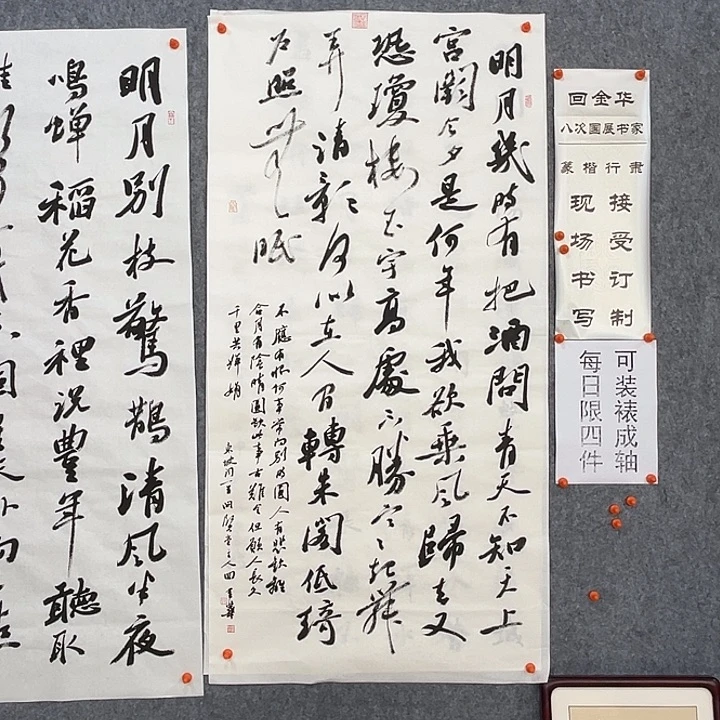 回金华
八次国展书家
篆楷行隶
接受订制
现场书写
可装裱成轴
每日限四件
明月幾时有把酒問青天不知天上
宮闕今夕是何年我欲乘风歸去又
恐瓊楼玉宇高處不勝寒起舞
弄清影何似在人间轉朱阁低琦
户照無眠
不應有恨何事常向別时圓人有悲歡離
合月有陰晴圓缺此事古難全但願人長久
千里共嬋娟
明月别枝驚鵲清风半夜
鳴蝉稻花香裡说豐年聽取